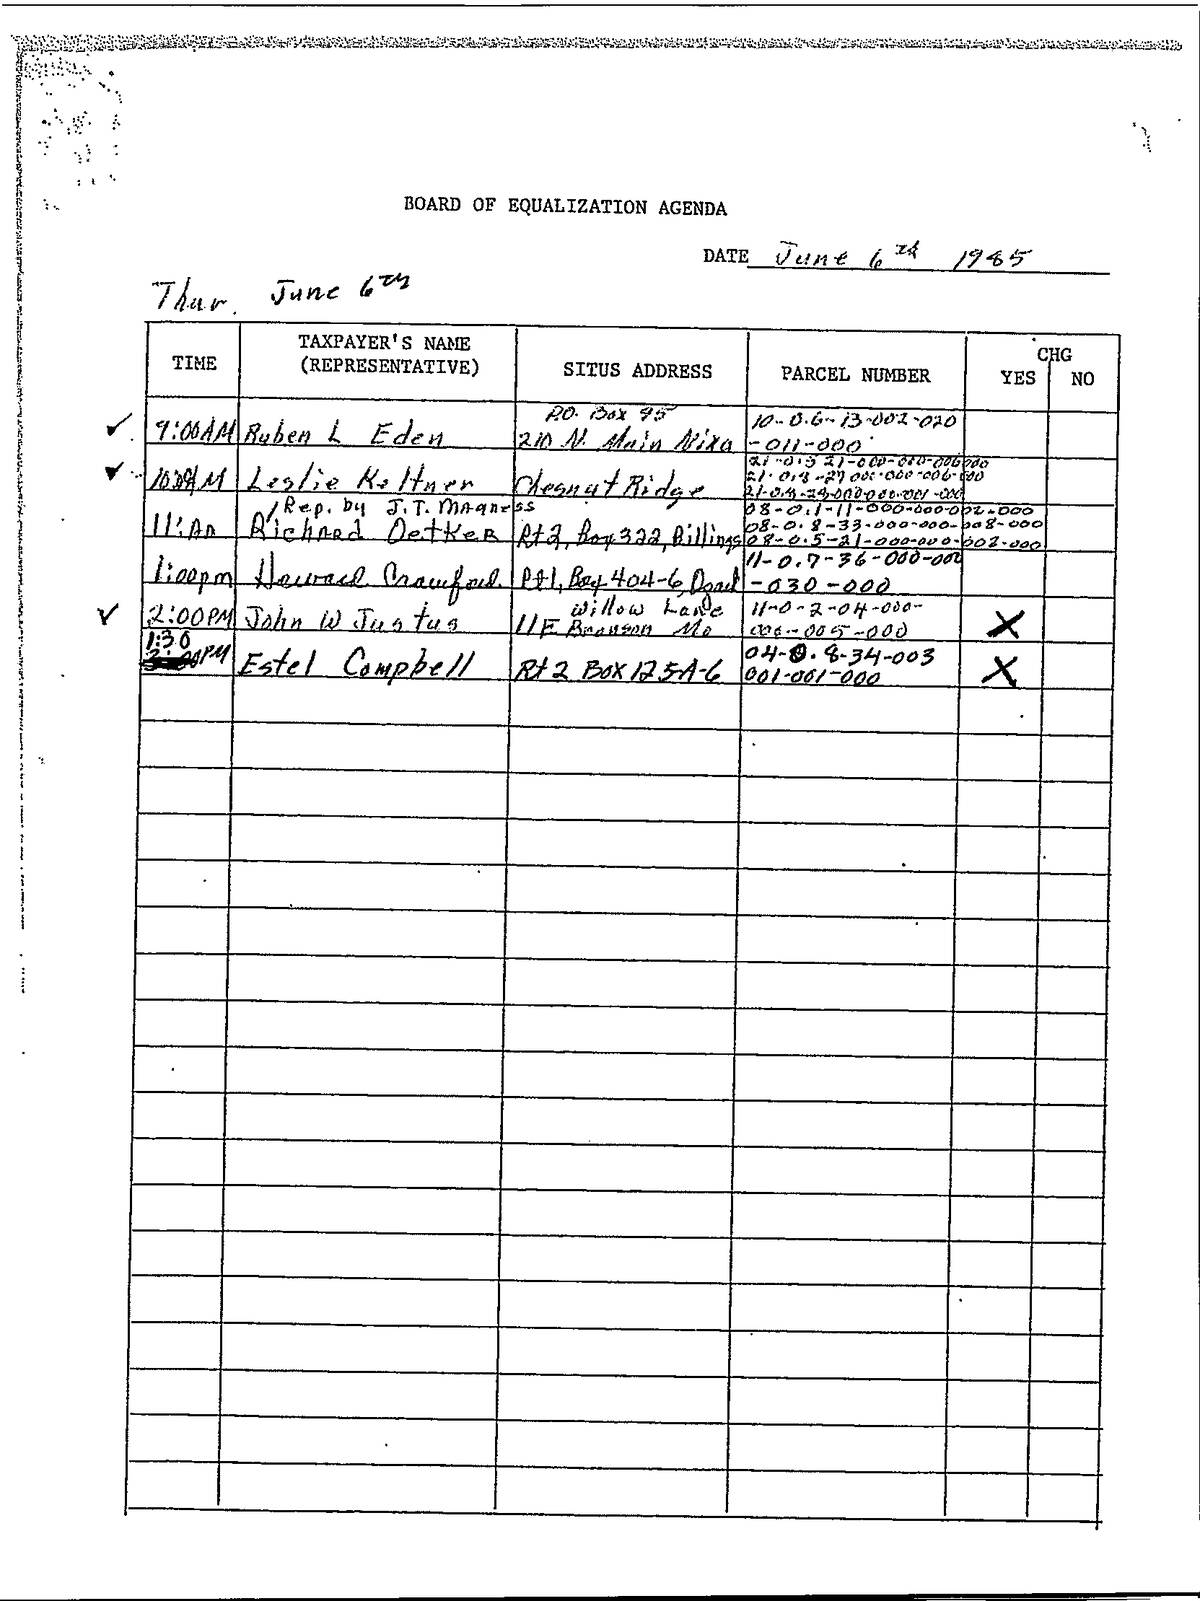 BOARD OF EQUALIZATION AGENDA
DATE June 6th 1985
Thur. June 6th
TIME
TAXPAYER'S NAME
(REPRESENTATIVE)
SITUS ADDRESS
PARCEL NUMBER
CHG
YES NO
P.O. Box 95 10-0.6-13-002-020
9:00AM Ruben L Eden 210 N. Main Nixa -011-000
21-0.3-21-000-000-006000
10:00AM Leslie Keltner Chesnut Ridge 21-0.8-27-000-000-006-000
21-0.8-28-000-000-001-000
Rep. by J.T. Magness 08-0.1-11-000-000-002-000
08-0.8-33-000-000-008-000
11:AM Richard Oetker Rt2, Box 322, Billings 08-0.5-21-000-000-002-000
11-0.7-36-000-000
1:00pm Howard Crawford Rt1, Box 404-6, Ozark -030-000
Willow Lane 11-0-2-04-000-
2:00PM John W Justus 11 E Branson Mo 000-005-000 X
1:30 04-0.8-34-003
PM Estel Campbell Rt 2 Box 125-A-6 001-001-000 X